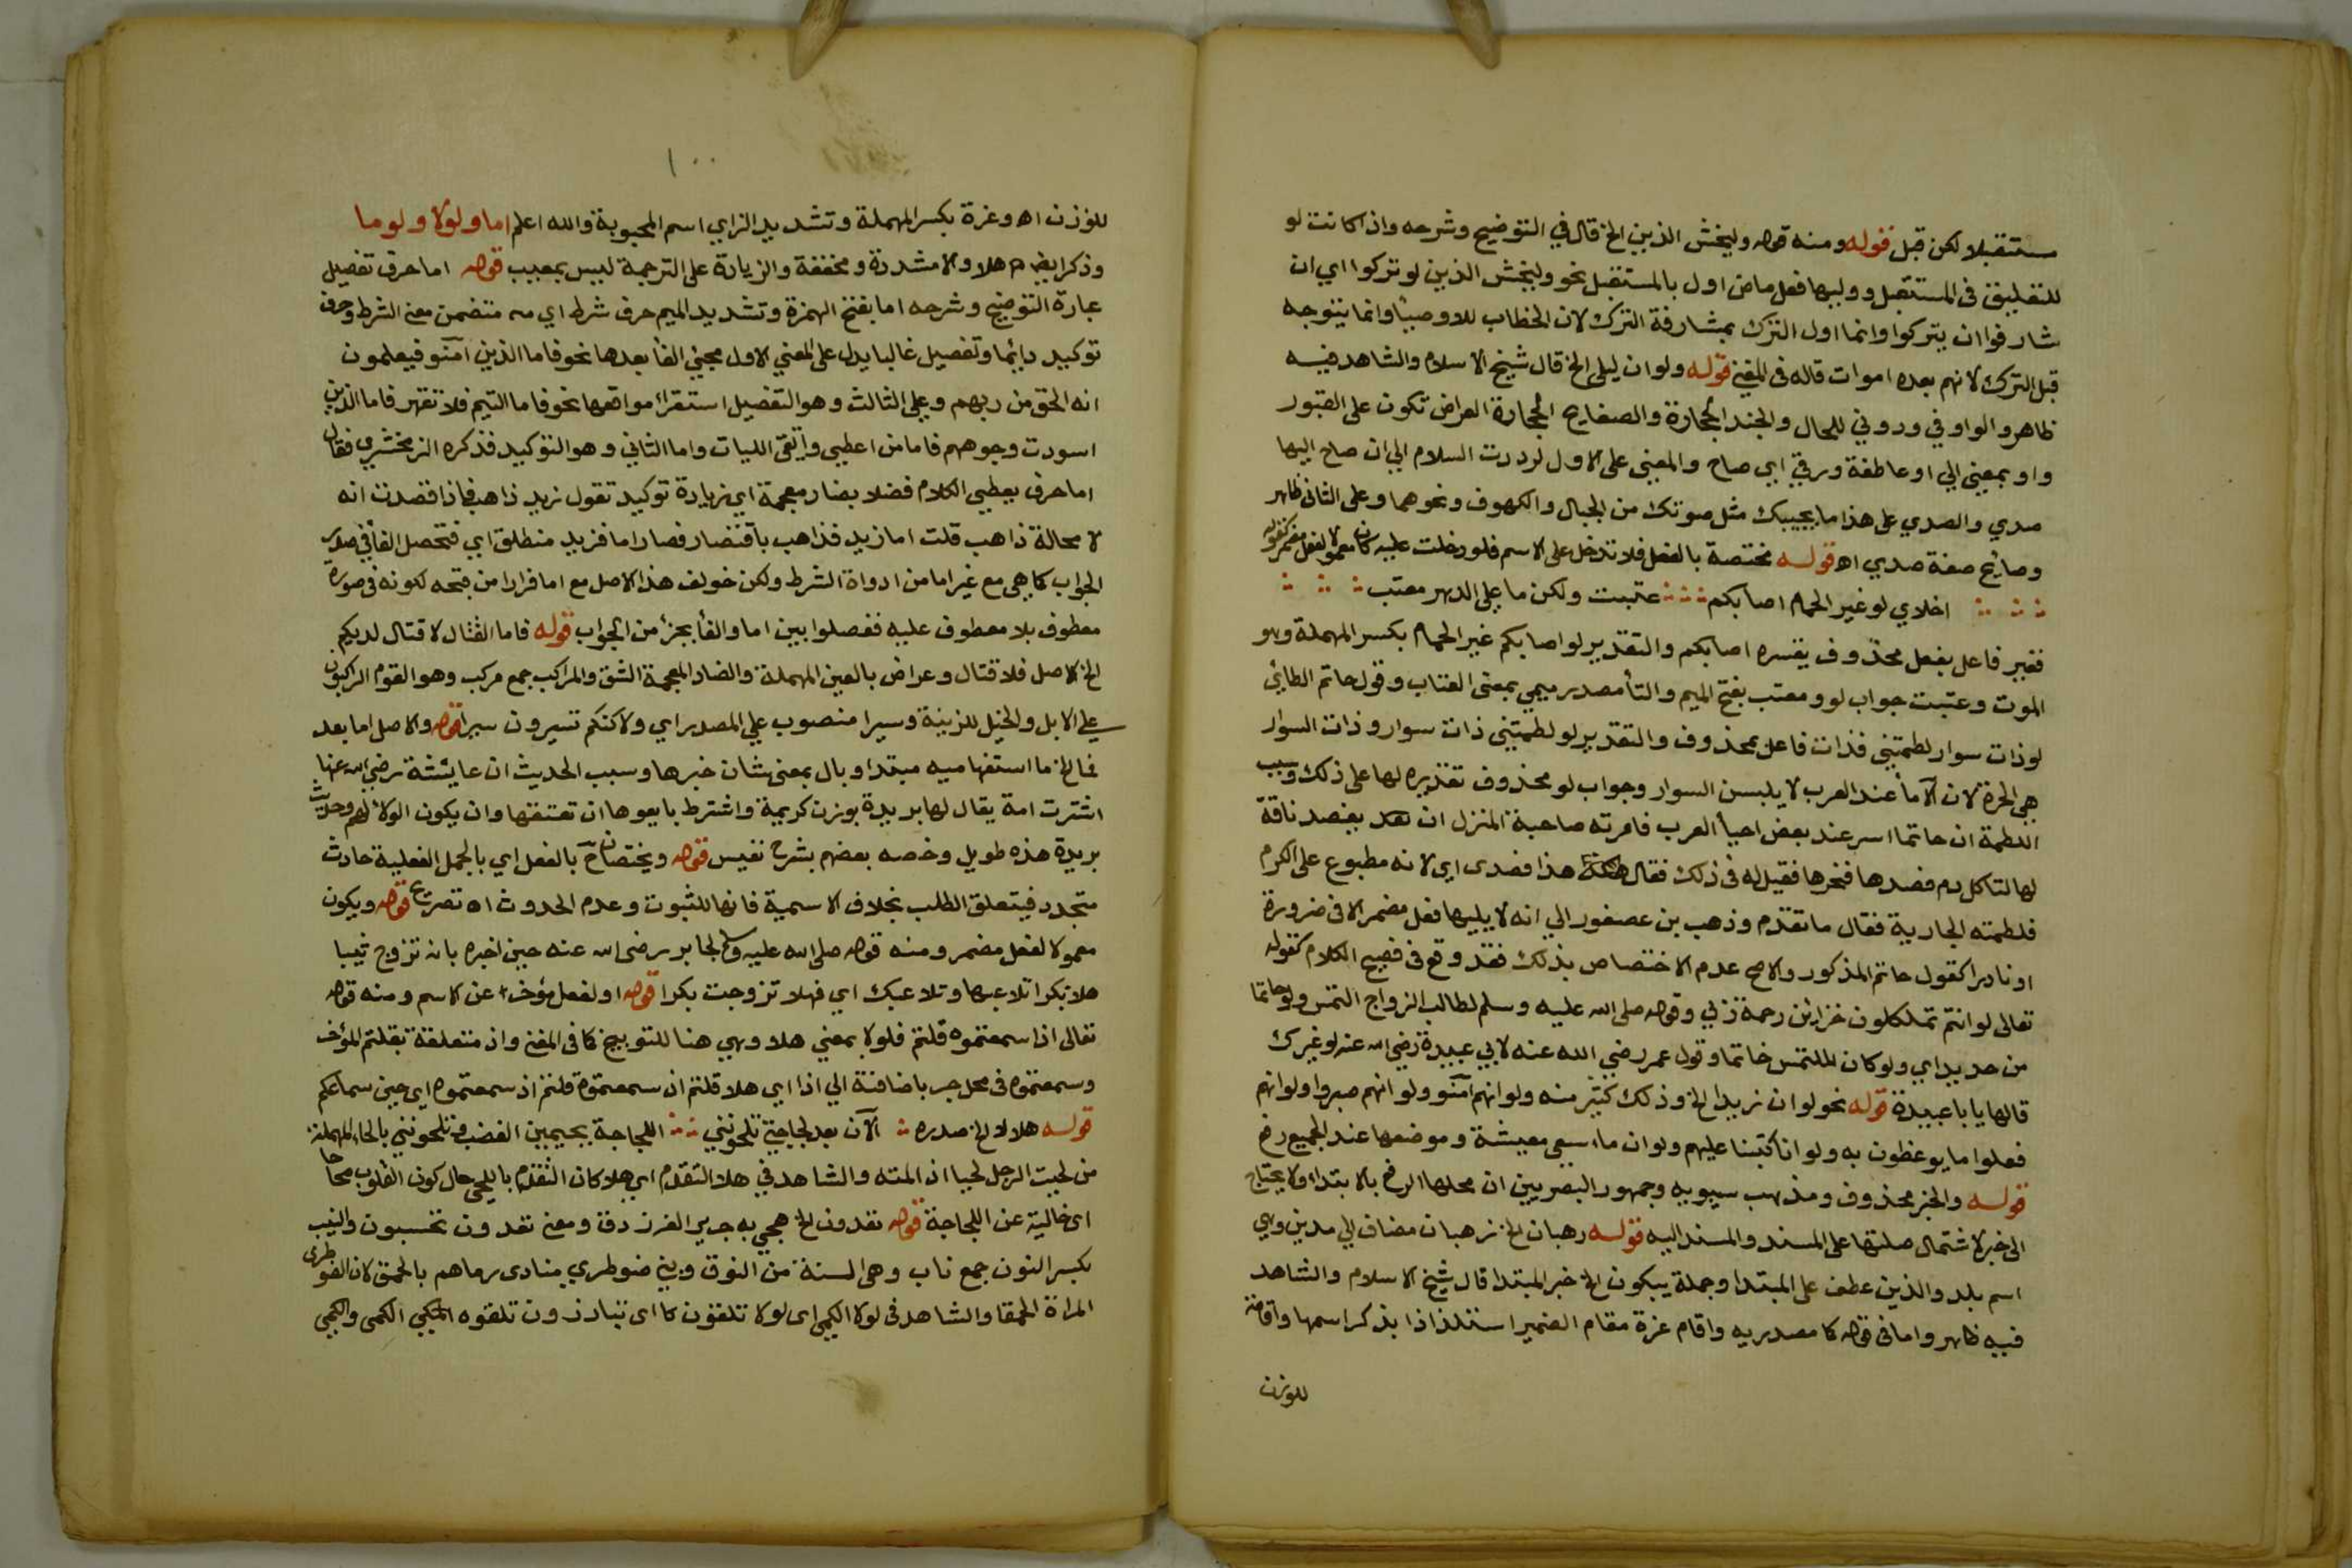 مستقبلا لكن قبل قوله ومنه قوله وليخش الذين الخ قال في التوضيح وشرحه واذا كانت لو
للتعليق فى المستقبل ووليها فعل ماض اول بالمستقبل نحو وليخش الذين لو تركوا اي ان
شارفوا ان يتركوا وانما اول الترك بمشارفة الترك لان الخطاب للاوصيأ وانما يتوجه
قبل الترك لانهم بعده اموات قاله فى المغني قوله ولو ان ليلى الخ قال شيخ الاسلام والشاهد فيه
ظاهر والواو في ودوني للحال والجندل الحجارة والصفايح الحجارة العراض تكون على القبور
واو بمعنى الي او عاطفة وزقي اي صاح والمعنى على الاول لرددت السلام الي ان صاح اليها
صدي والصدي على هذا ما يجيبك مثل صوتك من الجبال والكهوف ونحوهما وعلى الثاني ظاهر
وصائح صفة صدي اه قوله مختصة بالفعل فلا تدخل على الاسم فلو دخلت عليه كان معمولا لفعل مضمر كقوله
اخلاي لو غير الحمام اصابكم عتبت ولكن ما على الدهر معتب
فغير فاعل بفعل محذوف يفسره اصابكم والتقدير لو اصابكم غير الحمام بكسر المهملة وهو
الموت وعتبت جواب لو ومعتب بفتح الميم والتأ مصدر ميمي بمعنى العتاب وقول حاتم الطائى
لو ذات سوار لطمتني فذات فاعل بمحذوف والتقدير لو لطمتني ذات سوار وذات السوار
هي الحرة لان الآمأ عند العرب لا يلبسن السوار وجواب لو محذوف تقديره لها على ذلك وسبب
اللطمة ان حاتما اسر عند بعض احيأ العرب فامرته صاحبة المنزل ان يفصد ناقة
لها لتاكل دم فصدها فنحرها فقيل له فى ذلك فقال هذا فصدى اي لانه مطبوع على الكرم
فلطمته الجارية فقال ما تقدم وذهب بن عصفور الي انه لا يليها فعل مضمر الا في ضرورة
او نادرا كقول حاتم المذكور والاصح عدم الاختصاص بذلك فقد وقع فى فصيح الكلام كقوله
تعالى لو انتم تملكون خزائن رحمة ربي وقوله صلى الله عليه وسلم لطالب الزواج التمس ولو خاتما
من حديد اي ولو كان الملتمس خاتما وقول عمر رضي الله عنه لابي عبيدة رضي الله عنه لو غيرك
قالها يا ابا عبيدة قوله نحو لو ان زيدا الخ وذلك كثير منه ولو انهم آمنو ولو انهم صبروا ولو انهم
فعلوا ما يوعظون به ولو انا كتبنا عليهم ولو ان ما اسعى معيشة وموضعها عند الجميع رفع
قوله والخبر محذوف ومذهب سيبويه وجمهور البصريين ان محلها الرفع بالابتداء ولا يحتاج
الى خبر لاشتمال صلتها على المسند والمسند اليه قوله رهبان الخ رهبان مضاف الي مدين وهي
اسم بلد والذين عطف على المبتدا وجملة يبكون الخ خبر المبتدا قال شيخ الاسلام والشاهد
فيه ظاهر واما في قوله كما مصدريه واقام عزة مقام الضمير استلذاذا بذكر اسمها واقامة
للوزن
١٠٠
للوزن اه وعزة بكسر المهملة وتشديد الزاي اسم المحبوبة والله اعلم اما ولولا ولوما
وذكر ايضا هلا والا مشددة ومخففة والزيادة على الترجمة ليس بمعيب قوله اما حرف تفصيل
عبارة التوضيح وشرحه اما بفتح الهمزة وتشديد الميم حرف شرط اي متضمن معنى الشرط وحرف
توكيد دايما وتفصيل غالبا يدل على المعني الاول مجئ الفأ بعدها نحو فاما الذين آمنو فيعلمون
انه الحق من ربهم وعلي الثالث وهو التفصيل استقرأ مواقعها نحو فاما اليتيم فلا تقهر فاما الذين
اسودت وجوههم فاما من اعطي واتقى الايات واما الثاني وهو التوكيد فذكره الزمخشري فقال
اما حرف يعطي الكلام فضلا بضاد معجمة اي زيادة توكيد تقول زيد ذاهب فاذا قصدت انه
لا محالة ذاهب قلت اما زيد فذاهب باقتضار فصار اما فزيد منطلق اي فتحصل الفأ في صدر
الجواب كما هي مع غير اما من ادواة الشرط ولكن خولف هذا الاصل مع اما فرارا من قبحه لكونه فى صورة
معطوف بلا معطوف عليه ففصلوا بين اما والفأ بجزء من الجواب قوله فاما القتال لا قتال لديكم
الخ الاصل فلا قتال وعراض بالعين المهملة والضاد المعجمة الشق والمراكب جمع مركب وهو القوم الراكبون
علي الابل والخيل للزينة وسيرا منصوب علي المصدر اي ولاكنكم تسيرون سيرا قوله والاصل اما بعد
فما الخ ما استفهاميه مبتدا وبال بمعنى شان خبرها وسبب الحديث ان عايشة رضي الله عنها
اشترت امة يقال لها بريرة بوزن كريمة واشترط بايعوها ان تعتقها وان يكون الولا لهم وحديث
بريرة هذه طويل وخصه بعضهم بشرح نفيس قوله ويختصان ح بالفعل اي بالجمل الفعلية حادث
متجدد فيتعلق الطلب بخلاف الاسمية فانها للثبوت وعدم الحدوث اه تصريح قوله ويكون
معمولا لفعل مضمر ومنه قوله صلى الله عليه وسلم لجابر رضى الله عنه حين اخبره بانه تزوج ثيبا
هلا بكرا تلاعبها وتلاعبك اي فهلا تزوجت بكرا قوله او لفعل مؤخر عن الاسم ومنه قوله
تعالى اذا سمعتموه قلتم فلولا بمعني هلا وهي هنا للتوبيخ كما فى المغني واذ متعلقة بقلتم المؤخر
وسمعتموه فى محل جر باضافة الي اذا اي هلا قلتم اذ سمعتموه قلتم اذ سمعتموه اي حين سماعكم
قوله هلا الخ صدره الآن بعد لجاجتي تلحونني اللجاجة بجيمين الغضب وتلحونني بالحاء المهملة
من لحيت الرجل لحيا اذ المته والشاهد في هلا التقدم اي هلا كان التقدم باللحي حال كون القلوب صحاحا
اى خالية عن اللجاجة قوله تعدون الخ هجي به جرير الفرزدق ومعنى تعدون تحسبون والنيب
بكسر النون جمع ناب وهى المسنة من النوق وبني ضوطري منادى رماهم بالحمق لان الضوطرى
المراة الحمقا والشاهد فى لولا الكمي اى لولا تلقون كما اى تبارزون تلقوه المكمي الكمى والكمي